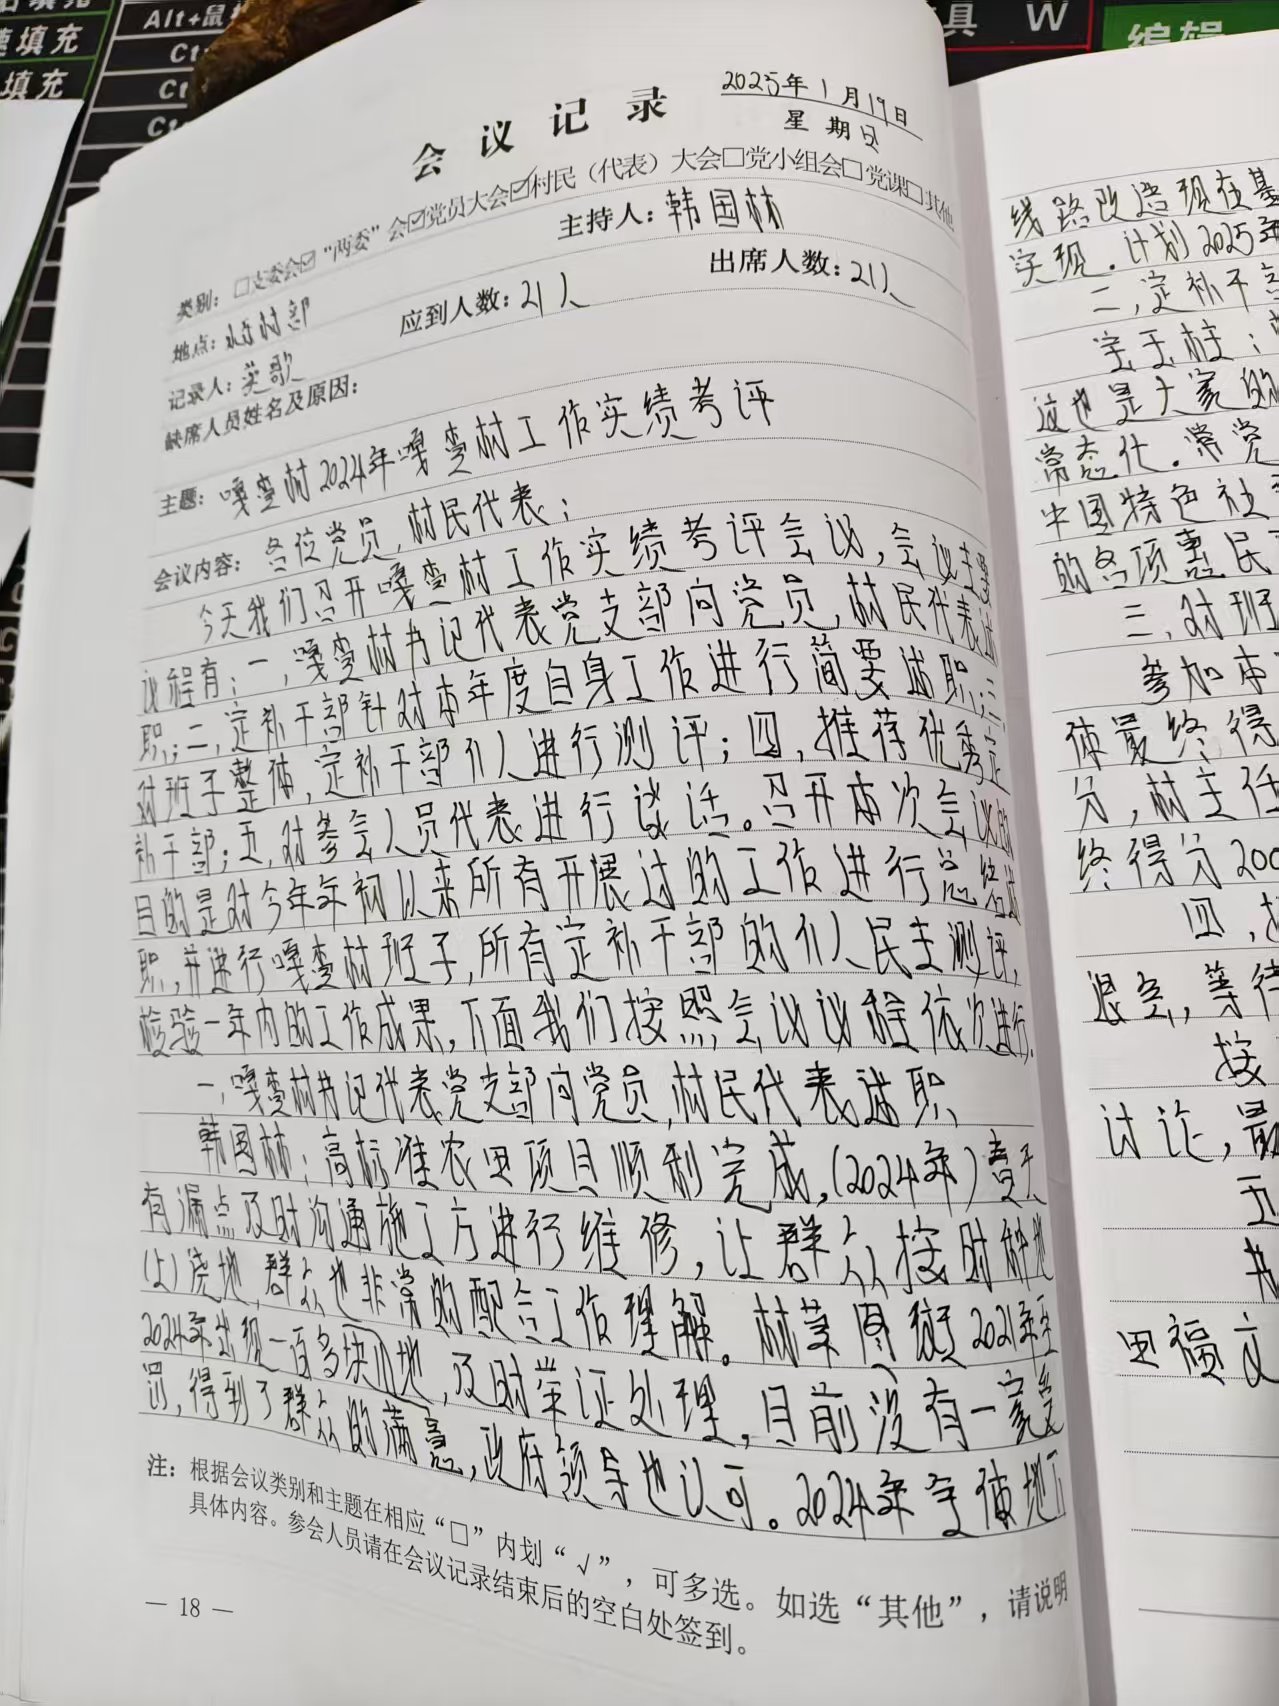 填充
Alt+鼠
填充
填充
具 W
编辑
会议记录
2025年1月19日
星期日
类别:□支委会☑“两委”会☑党员大会☑村民(代表)大会□党小组会□党课□其他
主持人:韩国林
地点:村部
应到人数:21人
出席人数:21人
记录人:英歌
缺席人员姓名及原因:
主题:嘎查村2024年嘎查村工作实绩考评
会议内容:各位党员,村民代表:
今天我们召开嘎查村工作实绩考评会议,会议主要
议程有:一,嘎查村书记代表党支部向党员,村民代表述
职;二,定补干部针对本年度自身工作进行简要述职;三,
对班子整体,定补干部个人进行测评;四,推荐优秀定
补干部;五,对参会人员代表进行谈话。召开本次会议的
目的是对今年年初以来所有开展过的工作进行总结述
职,并进行嘎查村班子,所有定补干部的个人民主测评,
检验一年内的工作成果,下面我们按照会议议程依次进行.
一,嘎查村书记代表党支部向党员,村民代表述职
韩国林:高标准农田项目顺利完成,(2024年)春天
有漏点及时沟通施工方进行维修,让群众按时种地
(上)浇地,群众也非常的配合工作理解。林草图斑2021年至
2024年出现一百多块小地,及时举证处理,目前没有一家受
罚,得到了群众的满意,政府领导也认可。2024年全体地下
注:根据会议类别和主题在相应“□”内划“√”,可多选。如选“其他”,请说明
具体内容。参会人员请在会议记录结束后的空白处签到。
— 18 —
线路改造现在基
实现.计划2025年
二,定补干
宝玉柱:
这也是大家的
常态化.常党
中国特色社
的各项惠民
三,对班
参加本
体最终得
分,村主任
终得分200
四,
退会,等待
按
讨论,最
五
田福文